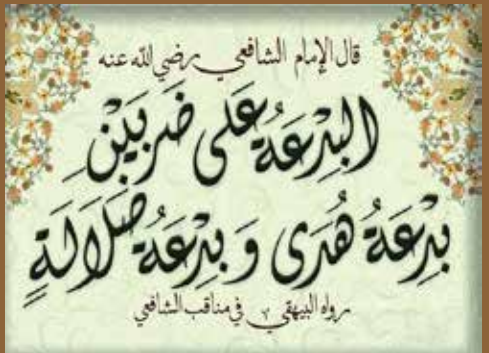 قال الإمام الشافعي رضي الله عنه
البِدْعَةُ عَلى ضَربَيْنِ
بِدْعَةُ هُدَى وَ بِدْعَةُ ضَلَالَةٍ
رواه البيهقي في مناقب الشافعي